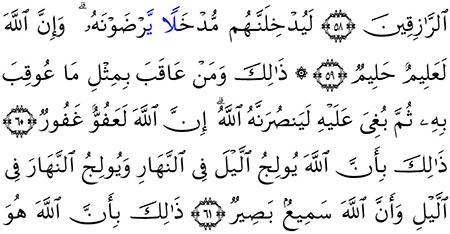 ٱلرَّٰزِقِينَ ٥٨ لَيُدْخِلَنَّهُم مُّدْخَلًا يَرْضَوْنَهُۥ ۗ وَإِنَّ ٱللَّهَ
لَعَلِيمٌ حَلِيمٌ ٥٩ ۞ ذَٰلِكَ وَمَنْ عَاقَبَ بِمِثْلِ مَا عُوقِبَ
بِهِۦ ثُمَّ بُغِىَ عَلَيْهِ لَيَنصُرَنَّهُ ٱللَّهُ ۗ إِنَّ ٱللَّهَ لَعَفُوٌّ غَفُورٌ ٦٠
ذَٰلِكَ بِأَنَّ ٱللَّهَ يُولِجُ ٱلَّيْلَ فِى ٱلنَّهَارِ وَيُولِجُ ٱلنَّهَارَ فِى
ٱلَّيْلِ وَأَنَّ ٱللَّهَ سَمِيعٌۢ بَصِيرٌ ٦١ ذَٰلِكَ بِأَنَّ ٱللَّهَ هُوَ